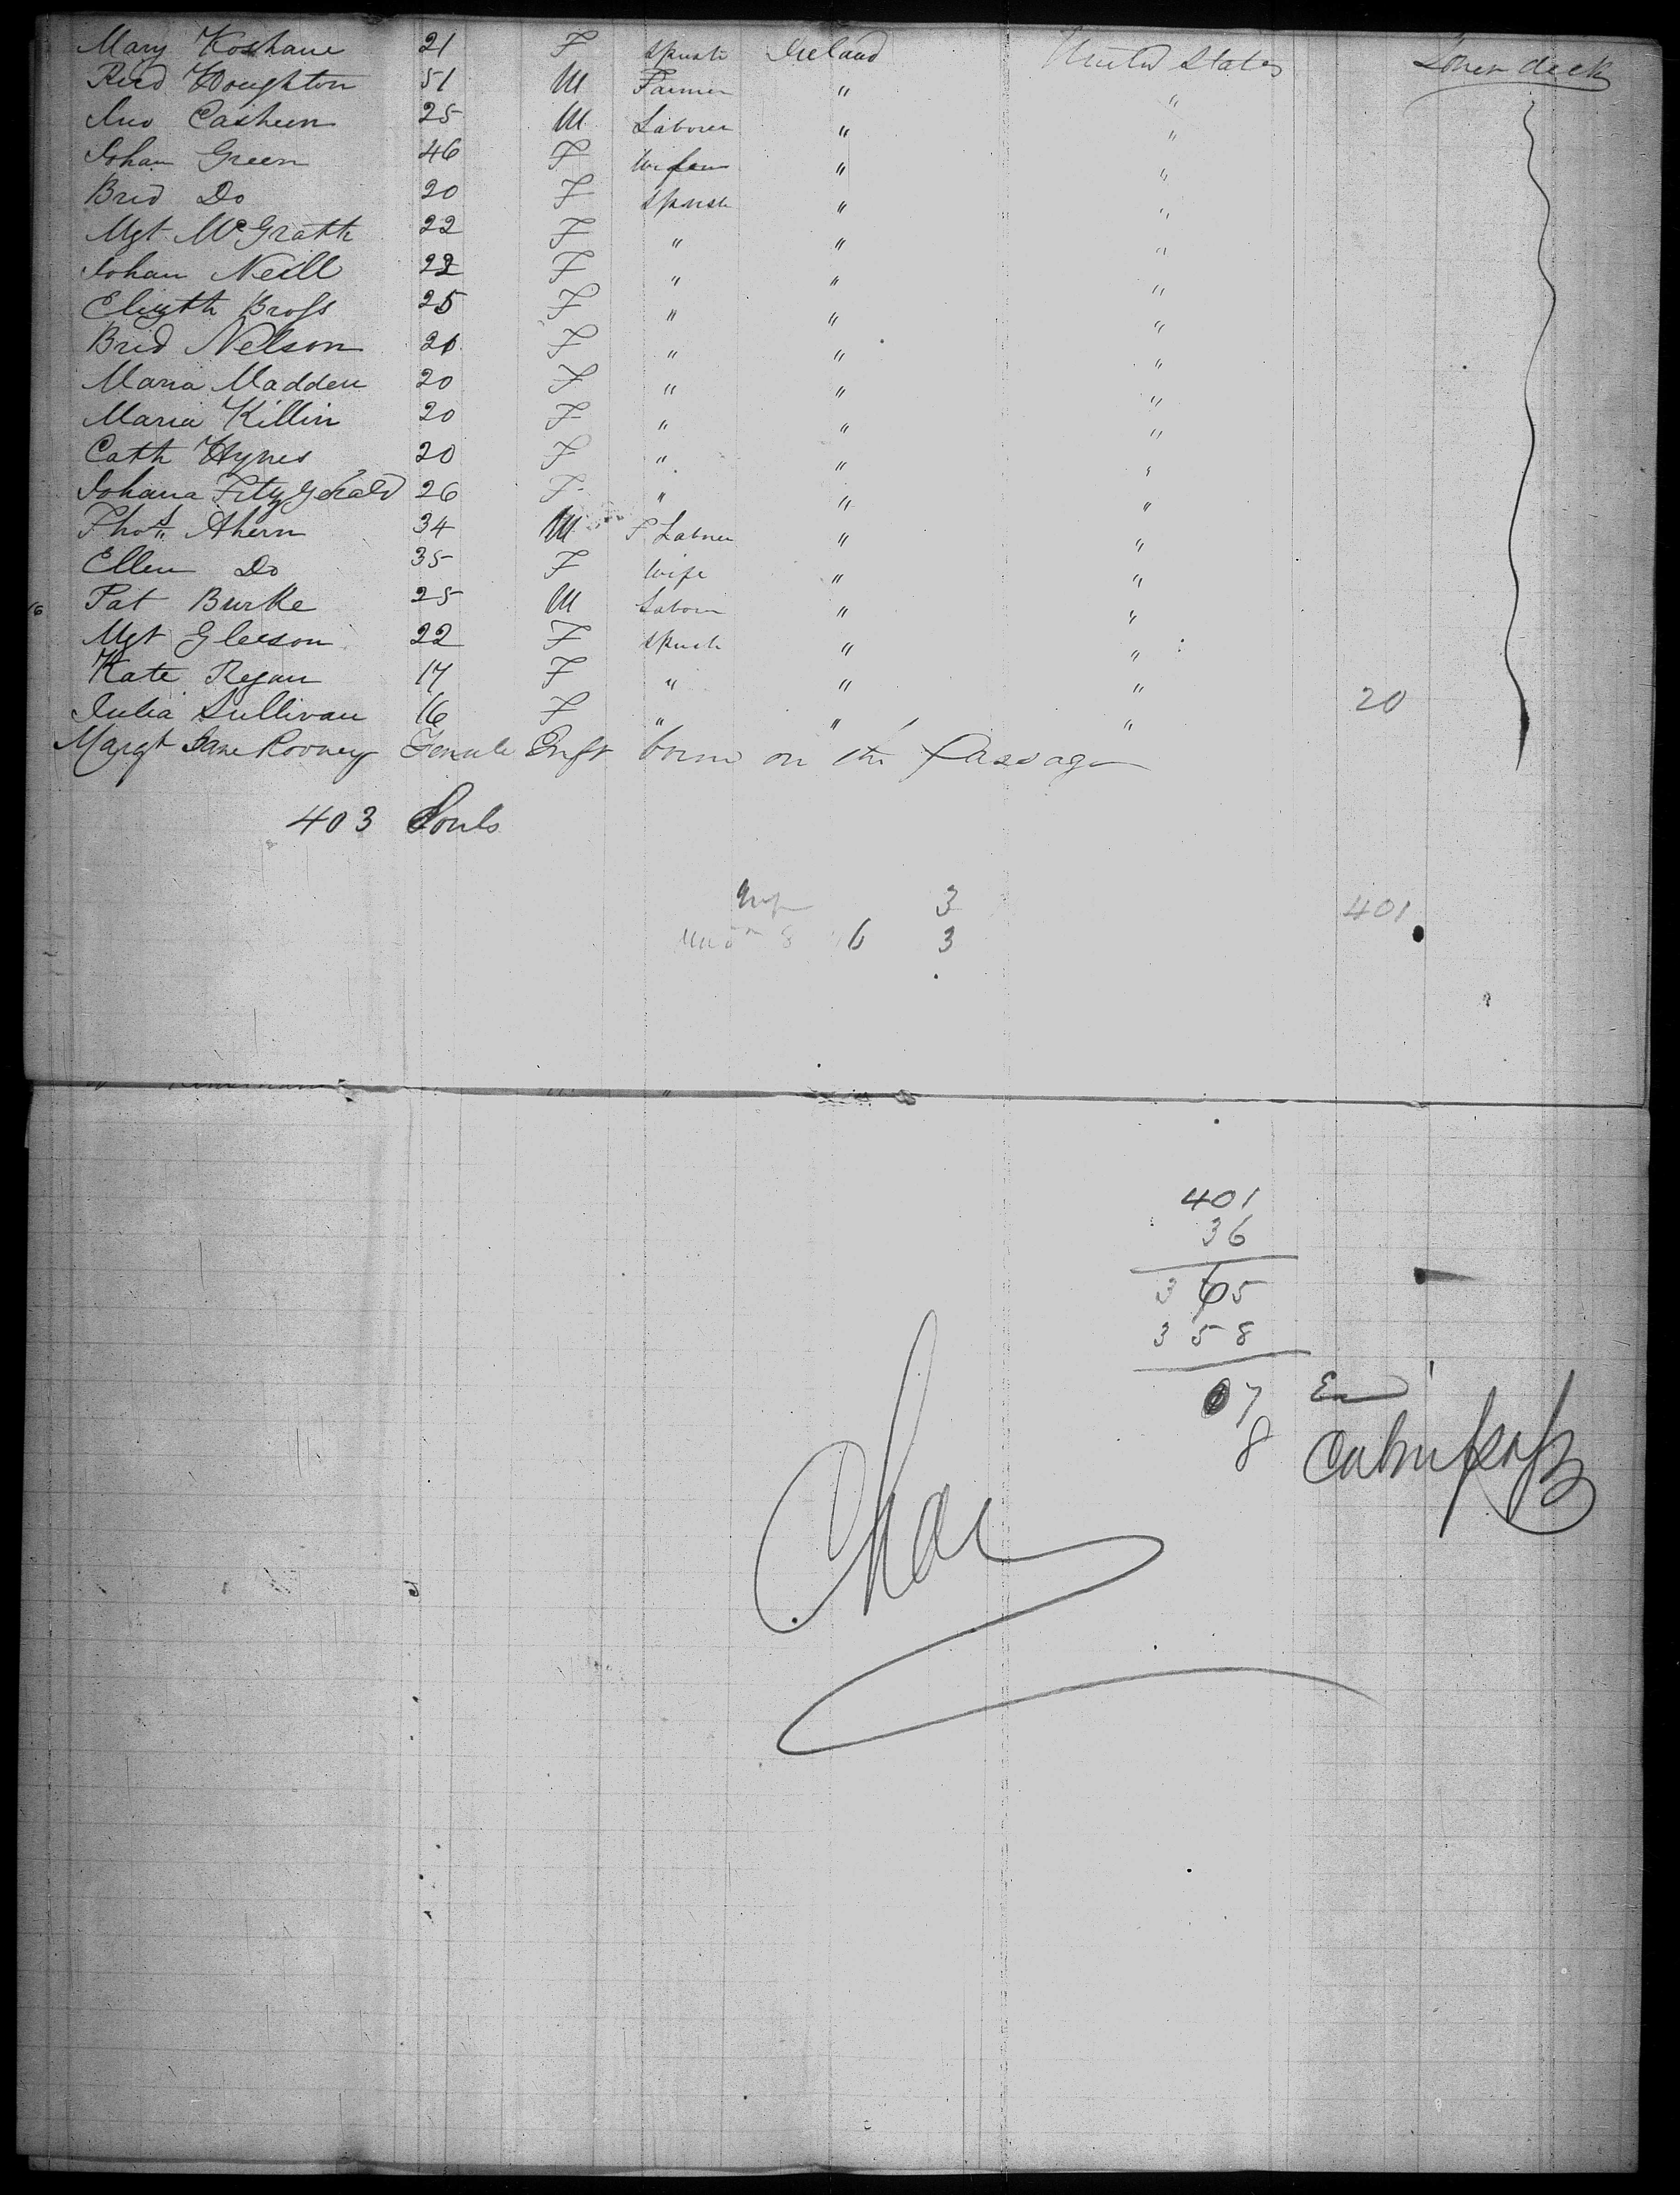 Mary Koshane 21 F Spinstr Ireland United States Lower deck
Richd Houghton 51 M Farmer " "
Jno Casheen 25 M Laborer " "
Johan Green 46 F " "
Brid Do 20 F Spinstr " "
Mgt McGrath 22 F " " "
Johan Neill 22 F " " "
Elizth Bross 25 F " " "
Brid Nelson 20 F " " "
Maria Madden 20 F " " "
Maria Killin 20 F " " "
Cath Hynes 20 F " " "
Johana FitzGerald 26 F " " "
Thos Ahern 34 M Laborer " "
Ellen Do 35 F Wife " "
16 Pat Burke 25 M Labour " "
Mgt Gleeson 22 F Spinstr " "
Kate Regan 17 F " " "
Julia Sullivan 16 F " " " 20
Margt Jane Rooney Female Inft born on the Passage
403 Souls
Inf 3 401
Und 8 6 3
401
36
365
358
7
8